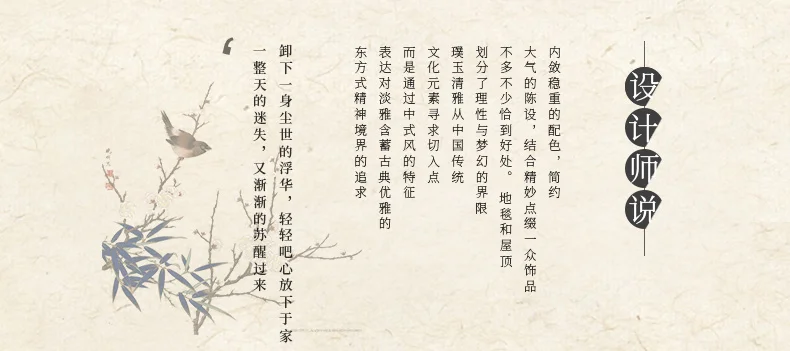 设计师说
内敛稳重的配色，简约
大气的陈设，结合精妙点缀一众饰品
不多不少恰到好处。 地毯和屋顶
划分了理性与梦幻的界限
璞玉清雅从中国传统
文化元素寻求切入点
而是通过中式风的特征
表达对淡雅含蓄古典优雅的
东方式精神境界的追求
卸下一身尘世的浮华，轻轻吧心放下于家
一整天的迷失，又渐渐的苏醒过来